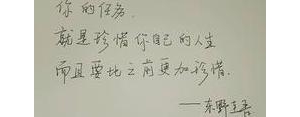 你的任务,
就是珍惜你自己的人生
而且要比之前更加珍惜.
——东野圭吾